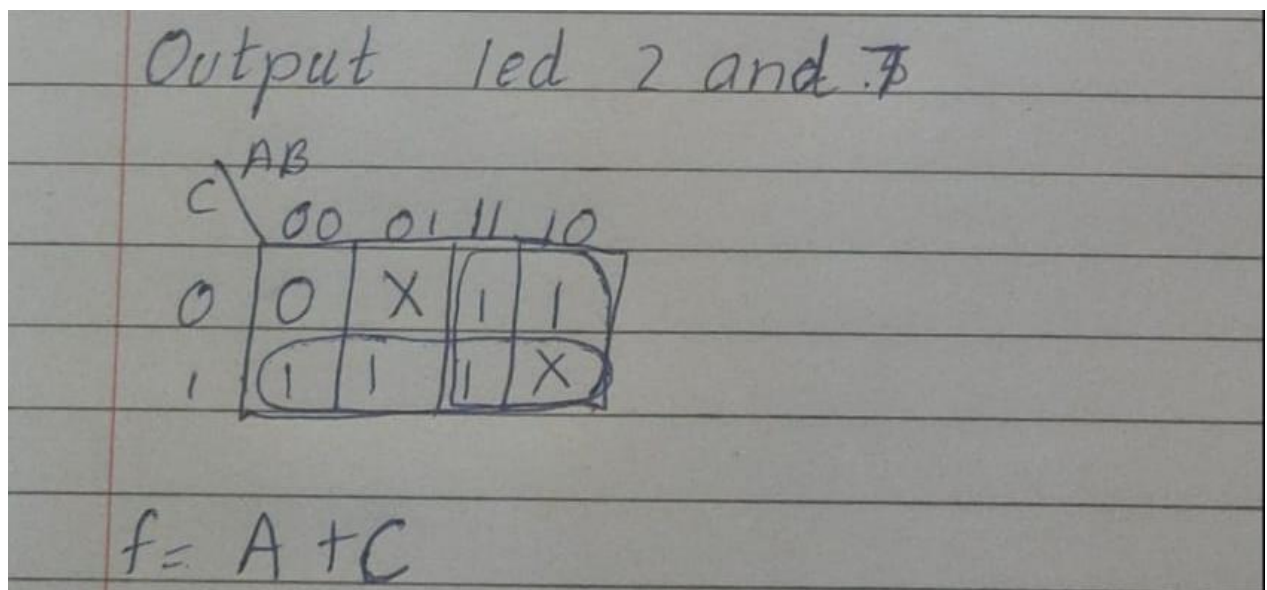 Output led 2 and
C \ AB
00 01 11 10
0 0 X 1 1
1 1 1 1 X
f= A + C